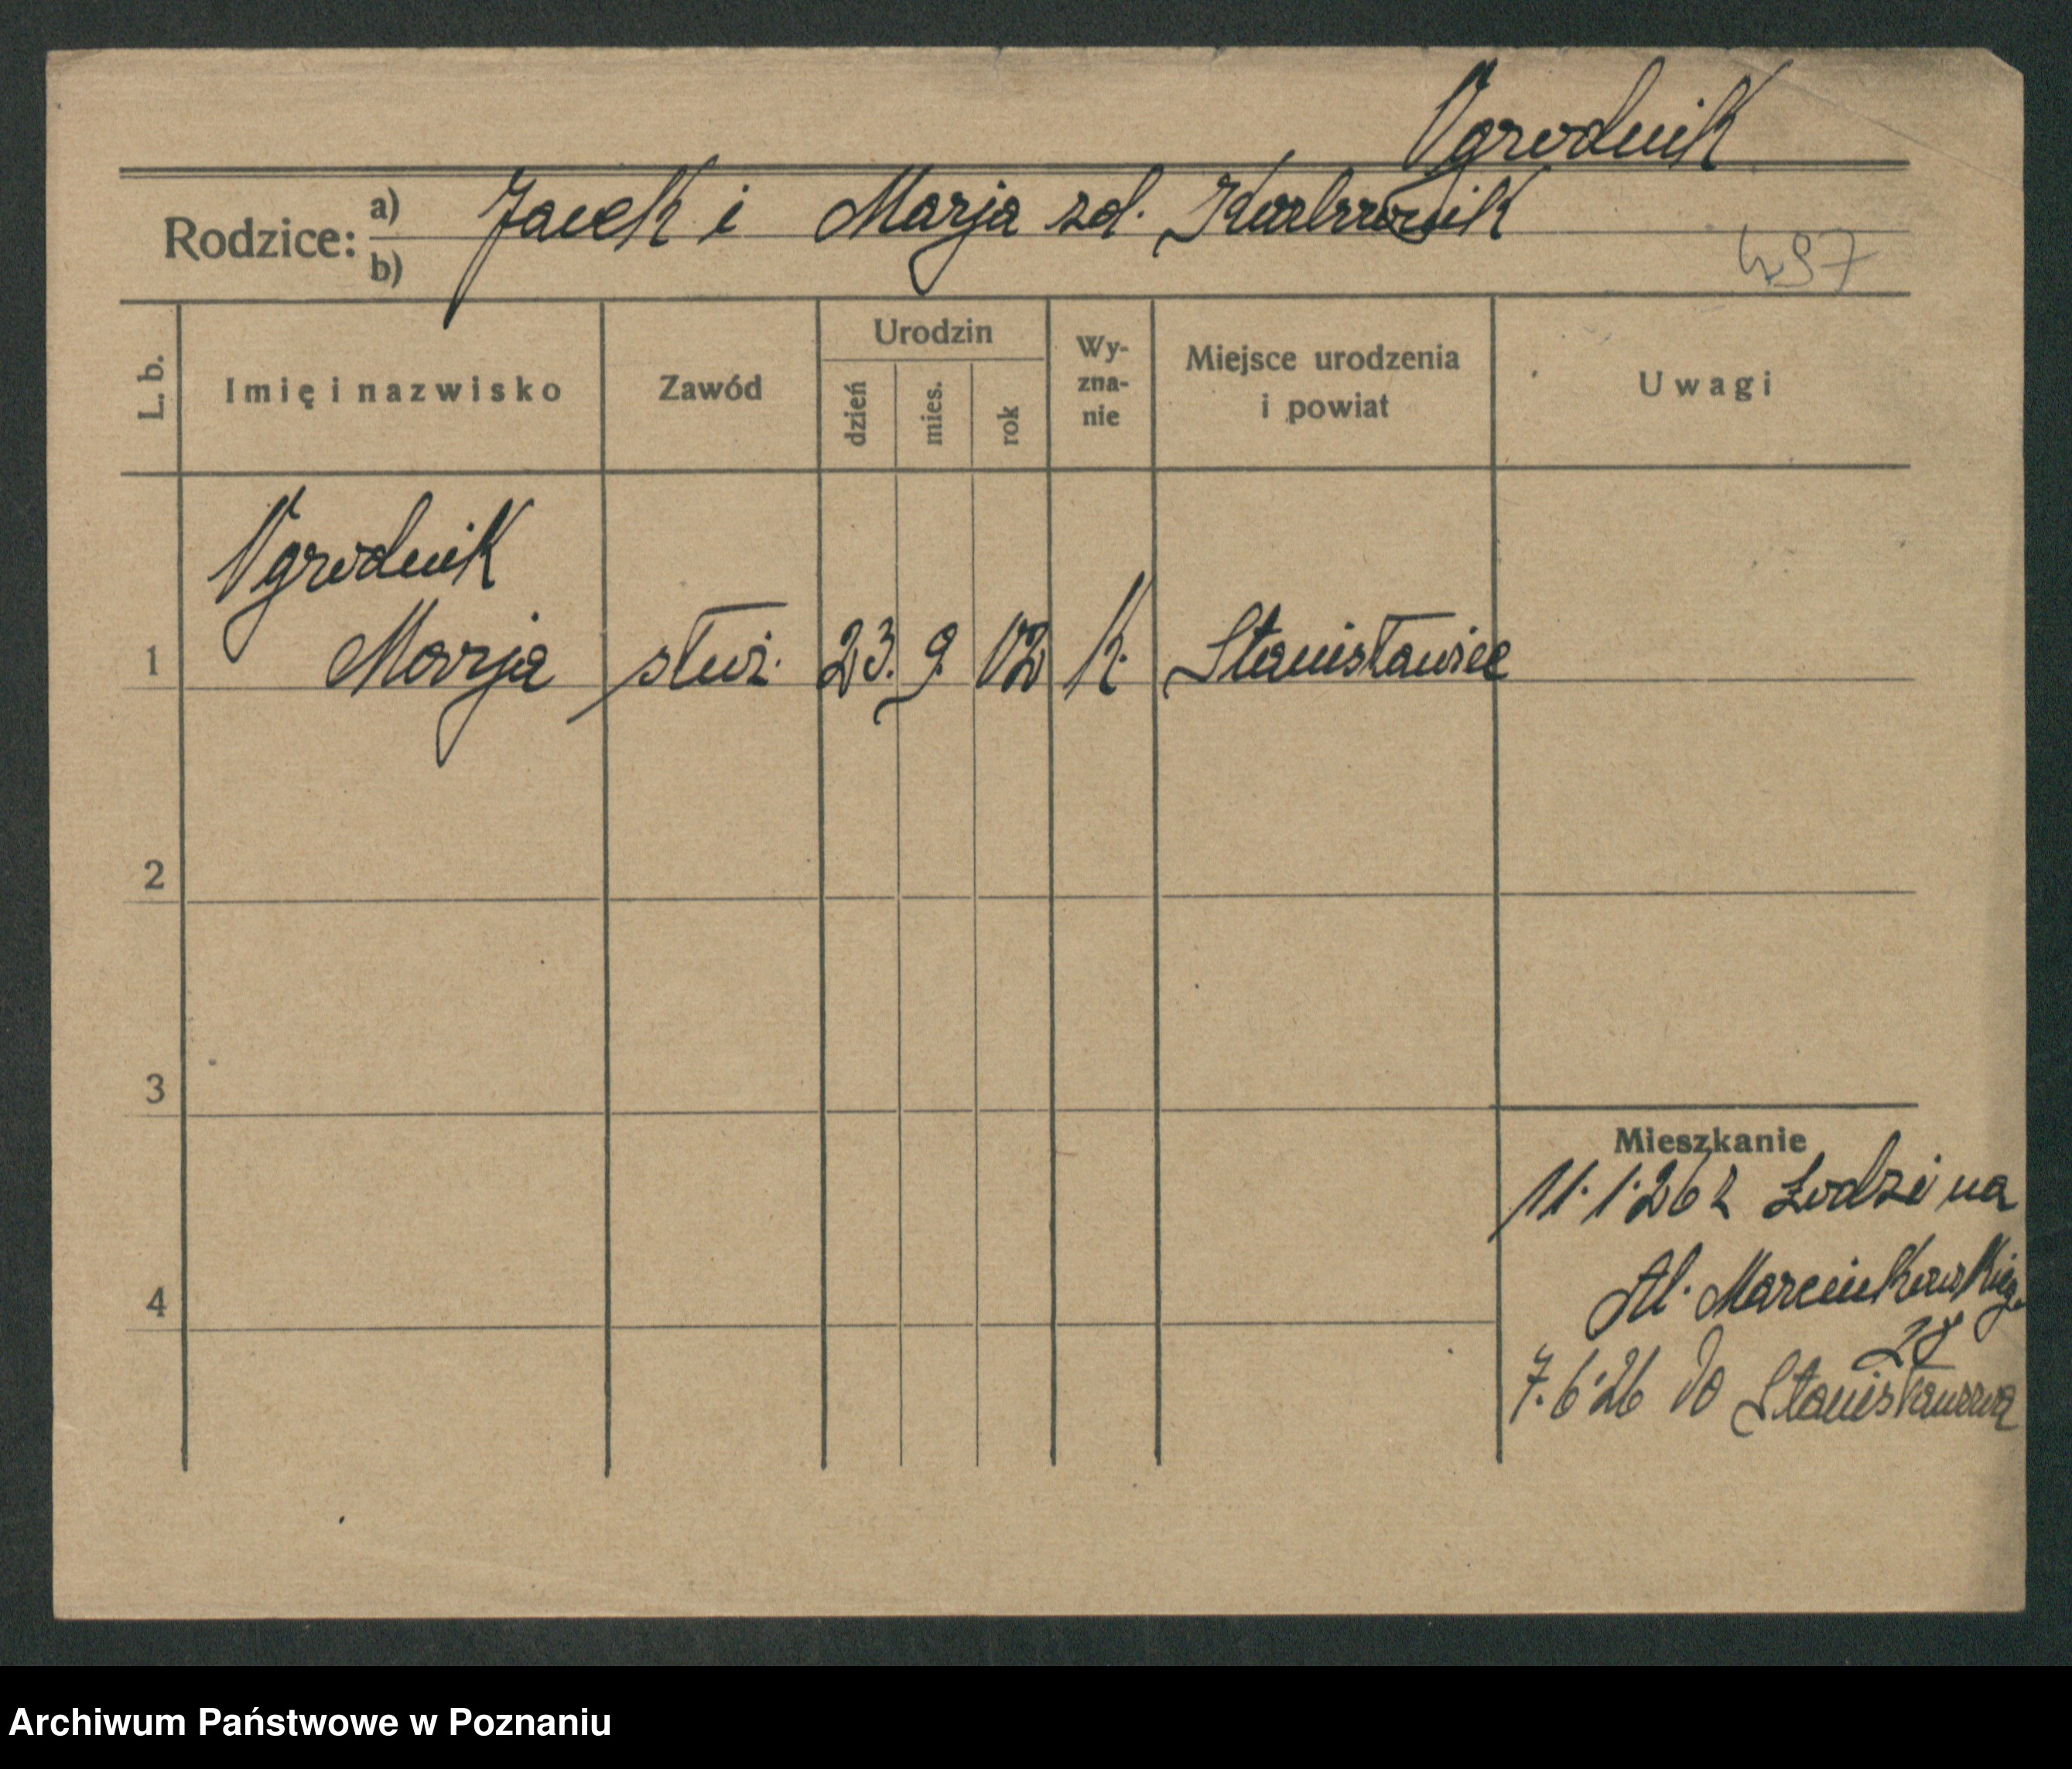 Ogrodnik
Rodzice: a) Jacek i Marja zd.
b)
497
L. b.
Imię i nazwisko
Zawód
Urodzin
dzień
mies.
rok
Wy-
zna-
nie
Miejsce urodzenia
i powiat
Uwagi
Ogrodnik
1 Marja służ. 23. 9. 02 k. Stanisławice
2
3
4
Mieszkanie
11.1.26 z Łodzi na
Al. Marcinkowskieg.
28
7.6.26 do Stanisławowa
Archiwum Państwowe w Poznaniu